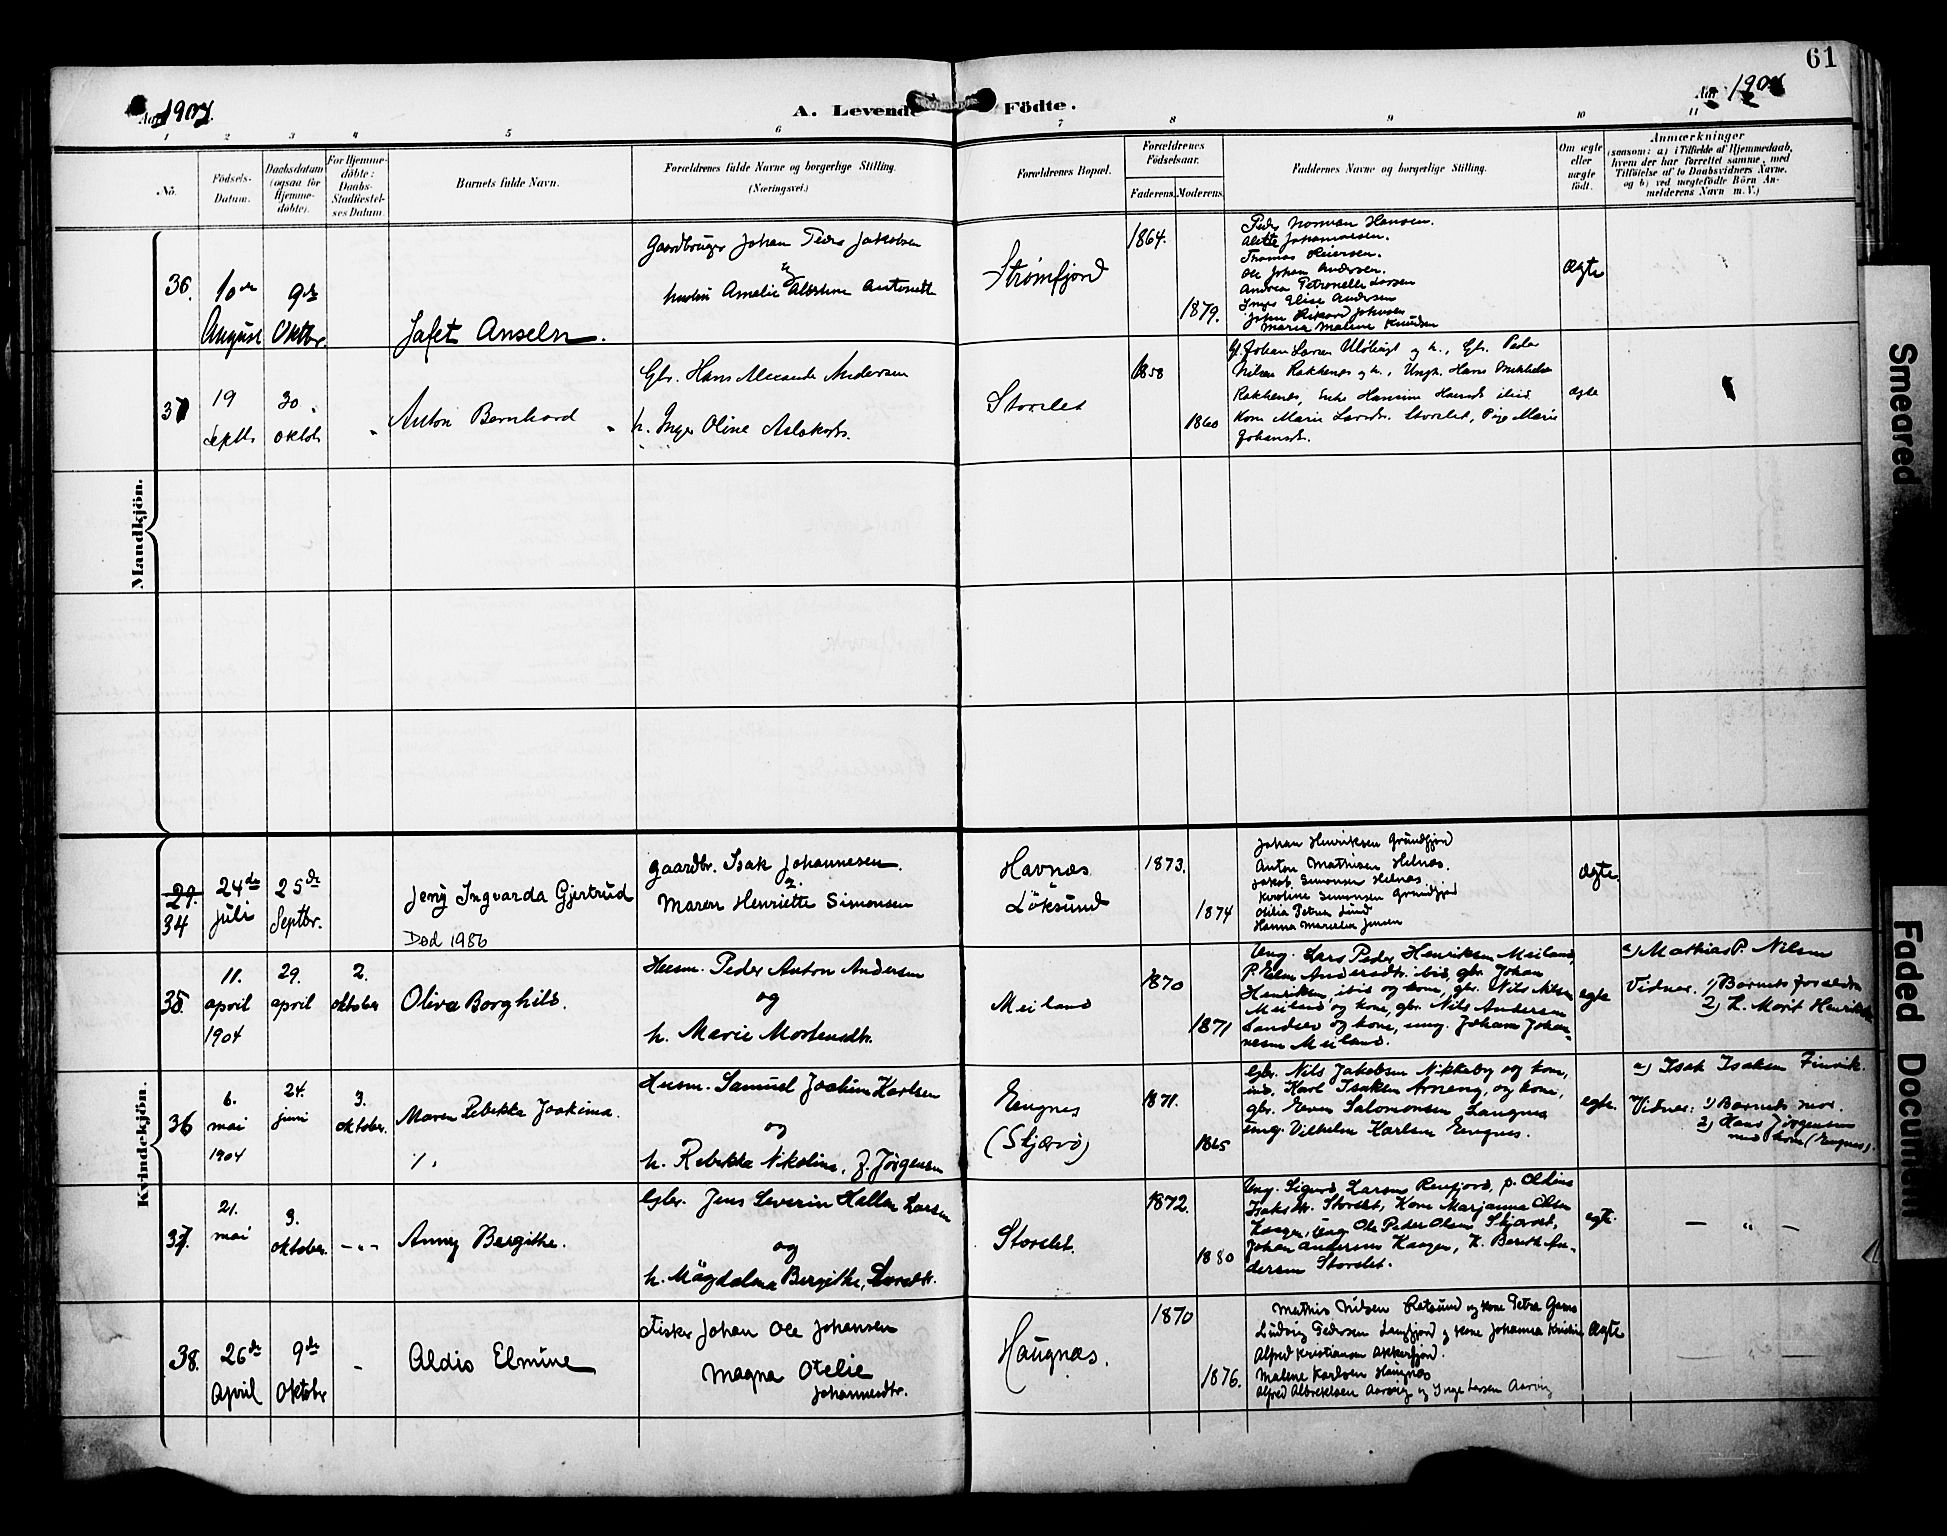 61
Aar 1904.
A. Levende Födte.
Aar 1904
1 2 3 4 5 6 7 8 9 10 11
No.
Födsels-Datum.
Daabsdatum (ogsaa for Hjemme-döbte).
For Hjemme-döbte: Daabs-Stadfæstel-ses Datum.
Barnets fulde Navn.
Forældrenes fulde Navne og borgerlige Stilling.
(Næringsvei.)
Forældrenes Bopæl.
Forældrenes Födselsaar.
Faderens. Moderens.
Faddernes Navne og borgerlige Stilling.
Om ægte eller uægte födt.
Anmærkninger
(saasom: a) i Tilfælde af Hjemmedaab, hvem der har forrettet samme, med Tilföielse af to Daabsvidners Navne, og b) ved uegtefödte Börn Anmelderens Navn m. V.)
Mandkjön.
36.
10de August
9de Oktbr.
Jafet Anselm.
Gaardbruger Johan Peder Jakobsen
og
hustru Amalie Albertine Antonsdt
Strømfjord
1864.
1879.
Peder Norman Hansen.
Alette Johannesen.
Thomas Peiersen.
Ole Johan Andersen.
Andrea Petronelle Larsen
Inger Elise Andersen
John Rikard Johnsen
Maria Malene Knudsen
Ægte
37
19 Septb.
30. oktob.
Anton Bernhard
Gbr. Hans Alexander Andersen
h. Inger Oline Aslaksdt.
Storslet
1858
1860
G. Johan Larsen og h., Gbr. Peder
Nilsen Rakkenes og h., Ungk. Hans Mikkelsen
Rakkenes, Enke Hansine ibid.
Kone Marie Larsdt. Storslet, Pige Marie
Johansdt.
ægte
Kvindekjön.
29.
34
24de juli
25de Septbr.
Jeny Ingvarda Gjertrud
Død 1986
Gaardbr. Isak Johannesen
og
Maren Henriette Simonsen
Havnæs
Löksund
1873.
1874
Johan Henriksen Grundfjord
Anton Mathisen Helnæs.
Jakob Simonsen Helnæs
Karoline Simonsen Grundfjord
Otilia Petrea Lund
Hanna Jensen
Ægte.
35.
11. april 1904
29. april
2. oktober
Oliva Borghild.
Husm. Peder Anton Andersen
og
h. Marie Mortensdtr.
Meiland
1870
1871
Ung. Lars Peder Henriksen Meiland,
P. Elen Andersdtr. ibid, gbr. Johan
Henriksen, ibid og kone, gbr. Nils Nilsen
Meiland og kone, gbr. Nils Andersen
Landslev og kone, ung. Johan Johan-
nesen Meiland.
egte
a) Mathias P. Nilsen
Vidner: 1) Barnets forældre
2) h. Marit Henriksen
36
6. mai 1904
24. juni
3. oktober.
Maren Rebekka Joakima.
Husm. Samuel Joakim Karlsen
og
h. Rebekka Nikoline, f. Jørgensen
Engnes
(Skjærvø)
1871.
1865
Gbr. Nils Jakobsen Nikkeby og kone,
ind. Karl Isaksen Arneng, og kone,
gbr. Even Salomonsen Langnes
ung. Vilhelm Karlsen Engnes.
egte.
a) Isak Isaksen Finvik.
Vidner: 1) Barnets mor.
2) Hans Jørgensen
med kone (Engnes).
37.
21. mai
3. oktober.
— " —
Anny Bergithe.
Gbr. Jens Severin Hallan Larsen
og
h. Magdalena Bergithe, Larsdtr.
Storslet.
1872.
1880
Ung. Sigurd Larsen Reinfjord, p. Oldine
Isaksdtr. Storslet, Kone Marjanna Olsen
Kaagen, Ung. Ole Peder Olsen Skjærvø,
Johan Andersen Kaagen, K. Bereth An-
dersen Storslet.
egte.
— " —
38.
26de april
9de Oktobr
Aldis Elmine
Fisker Johan Ole Johansen
Magna Otelie
Johannesdtr.
Haugnæs.
1870
1876.
Mathis Nilsen Rotsund og kone Petra
Ludvig Pedersen Langfjord og kone Johanna Kristine
Alfred Kristiansen Akkarfjord.
Malene Karlsen Haugnæs
Alfred Albrektsen Aarviig og Inge Larsen Aarviig
Ægte
— " —
Smeared
Faded Document